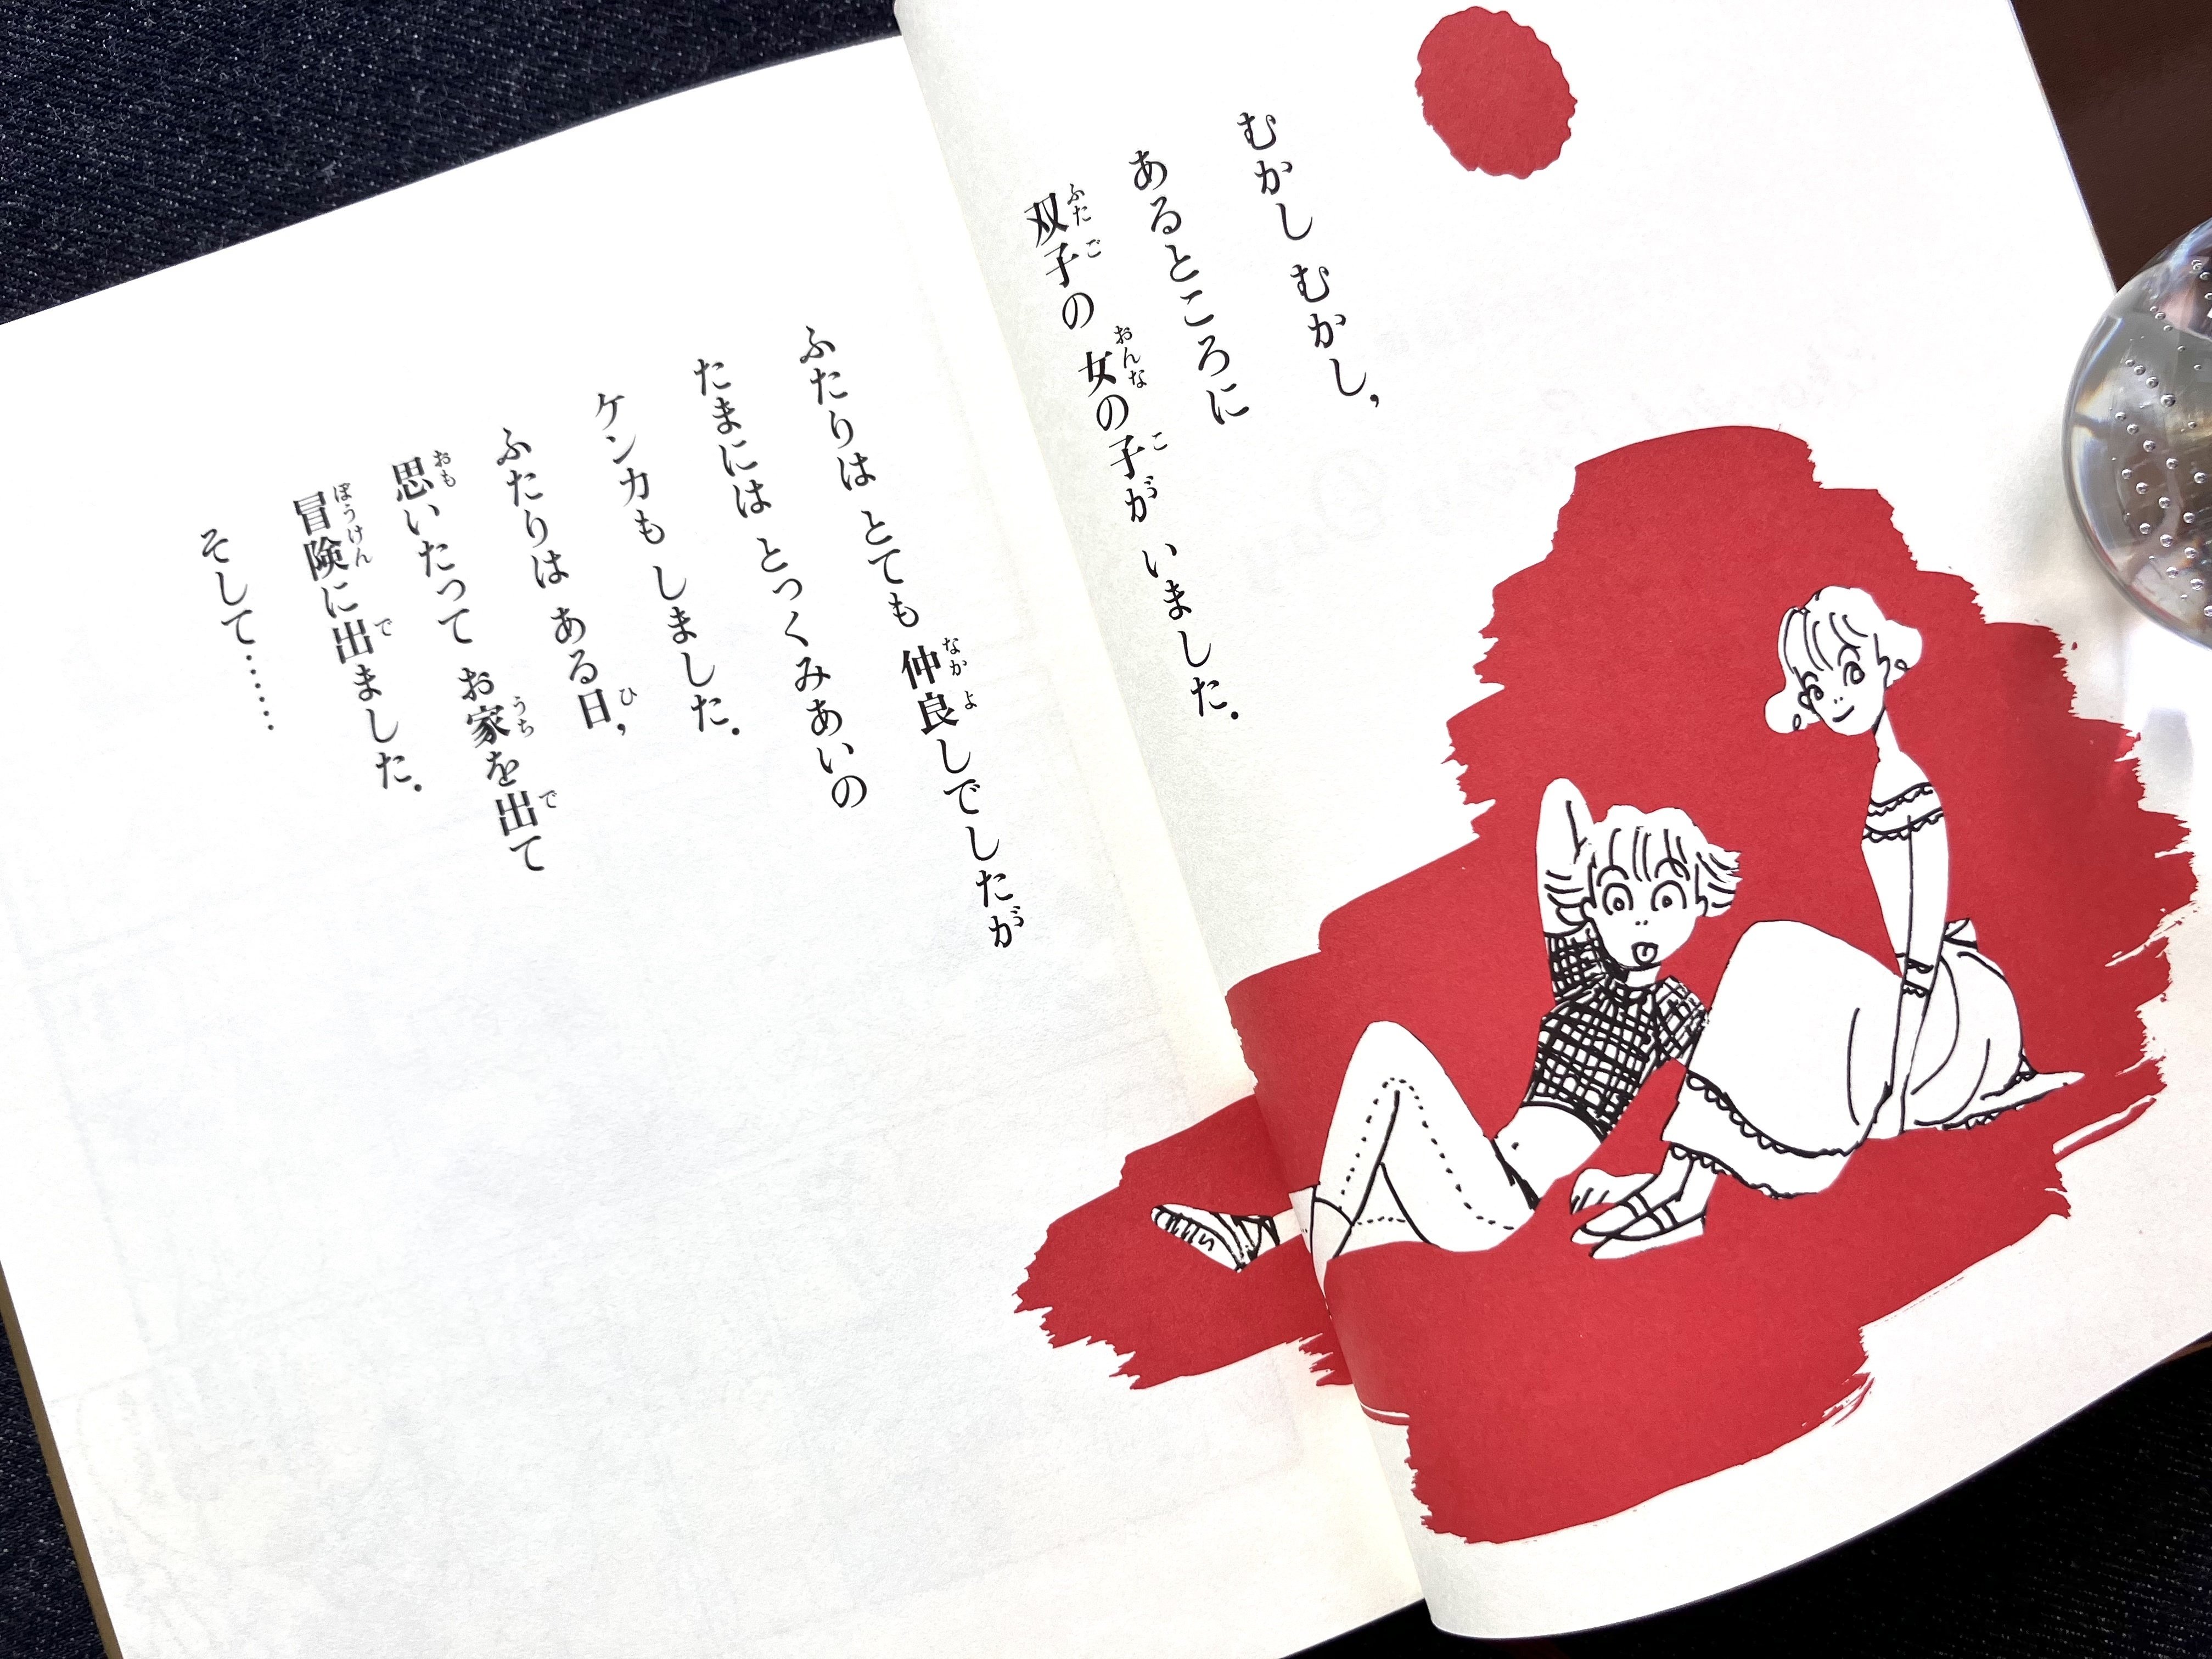 むかし むかし，
あるところに
双子の 女の子が いました．
ふたりは とても 仲良しでしたが
たまには とっくみあいの
ケンカも しました．
ふたりは ある日，
思いたって お家を出て
冒険に出ました．
そして……